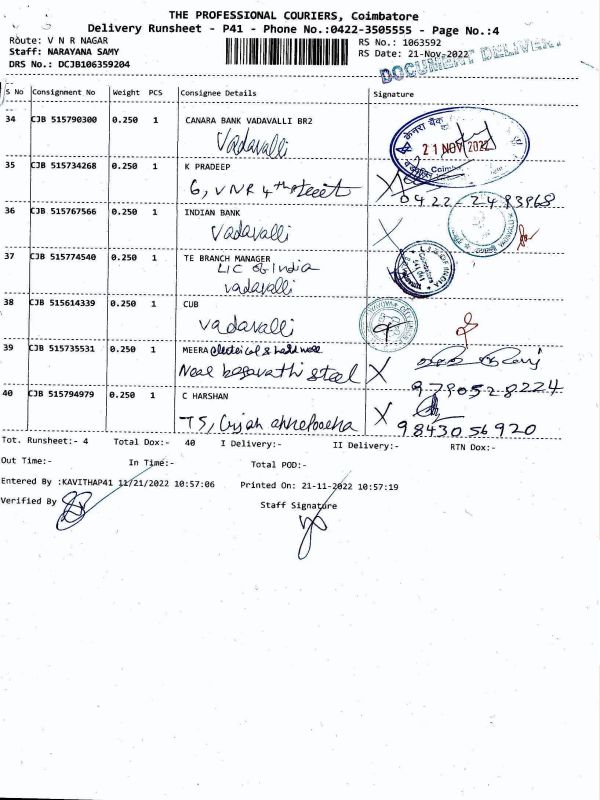 THE PROFESSIONAL COURIERS, Coimbatore
Delivery Runsheet - P41 - Phone No.:0422-3505555 - Page No.:4
Route: V N R NAGAR
Staff: NARAYANA SAMY
DRS No.: DCJB106359204
RS No.: 1063592
RS Date: 21-Nov-2022
DOCUMENT DELIVERY
S No Consignment No Weight PCS Consignee Details Signature
34 CJB 515790300 0.250 1 CANARA BANK VADAVALLI BR2
Vadavalli
केनरा बैंक
21 NOV 2022
35 CJB 515734268 0.250 1 K PRADEEP
6, V N R 4th street
0422-2493968
36 CJB 515767566 0.250 1 INDIAN BANK
Vadavalli
37 CJB 515774540 0.250 1 TE BRANCH MANAGER
LIC of India
vadavalli
38 CJB 515614339 0.250 1 CUB
vadavalli
39 CJB 515735531 0.250 1 MEERA
Near bagavathi steel
9790528224
40 CJB 515794979 0.250 1 C HARSHAN
9843056920
Tot. Runsheet:- 4 Total Dox:- 40 I Delivery:- II Delivery:- RTN Dox:-
Out Time:- In Time:- Total POD:-
Entered By :KAVITHAP41 11/21/2022 10:57:06 Printed On: 21-11-2022 10:57:19
Verified By Staff Signature